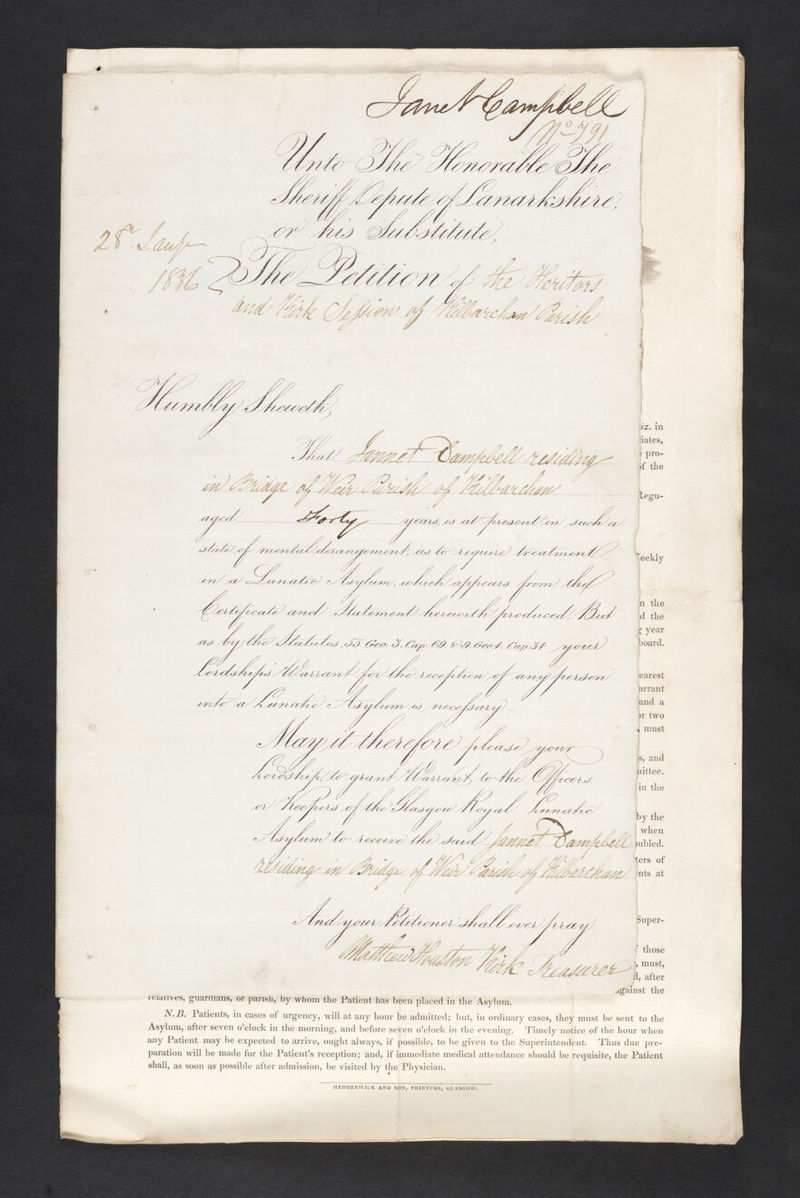 Janet Campbell
No 791
Unto The Honorable The
Sheriff Depute of Lanarkshire,
or his Substitute,
28th Jany
1836
The Petition of the Heritors
and Kirk Session of Kilbarchan Parish
Humbly Sheweth,
That Jannet Campbell residing
in Bridge of Weir Parish of Kilbarchan
aged Forty years, is at present in such a
state of mental derangement, as to require treatment
in a Lunatic Asylum, which appears from the
Certificate and Statement herewith produced. But
as by the Statutes, 55 Geo. 3. Cap. 69. & 9. Geo. 4. Cap. 34 your
Lordship's Warrant for the reception of any person
into a Lunatic Asylum is necessary
May it therefore please your
Lordship, to grant Warrant to the Officers
or Keepers of the Glasgow Royal Lunatic
Asylum to receive the said Jannet Campbell
residing in Bridge of Weir Parish of Kilbarchan
And your Petitioner shall ever pray
Matthew Houston Kirk Treasurer
iz. in
iates,
pro-
of the
Regu-
eekly
n the
d the
year
board.
earest
arrant
and a
or two
must
s, and
mittee.
in the
by the
when
ubled.
ters of
nts at
Super-
those
must,
d, after
against the
relatives, guardians, or parish, by whom the Patient has been placed in the Asylum.
N.B. Patients, in cases of urgency, will at any hour be admitted; but, in ordinary cases, they must be sent to the
Asylum, after seven o'clock in the morning, and before seven o'clock in the evening. Timely notice of the hour when
any Patient may be expected to arrive, ought always, if possible, to be given to the Superintendent. Thus due pre-
paration will be made for the Patient's reception; and, if immediate medical attendance should be requisite, the Patient
shall, as soon as possible after admission, be visited by the Physician.
HEDDERWICK AND SON, PRINTERS, GLASGOW.